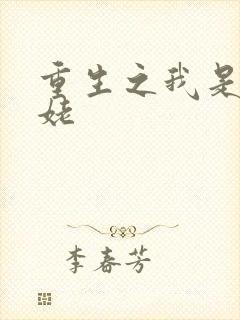 重生之我是
姥
李春芳